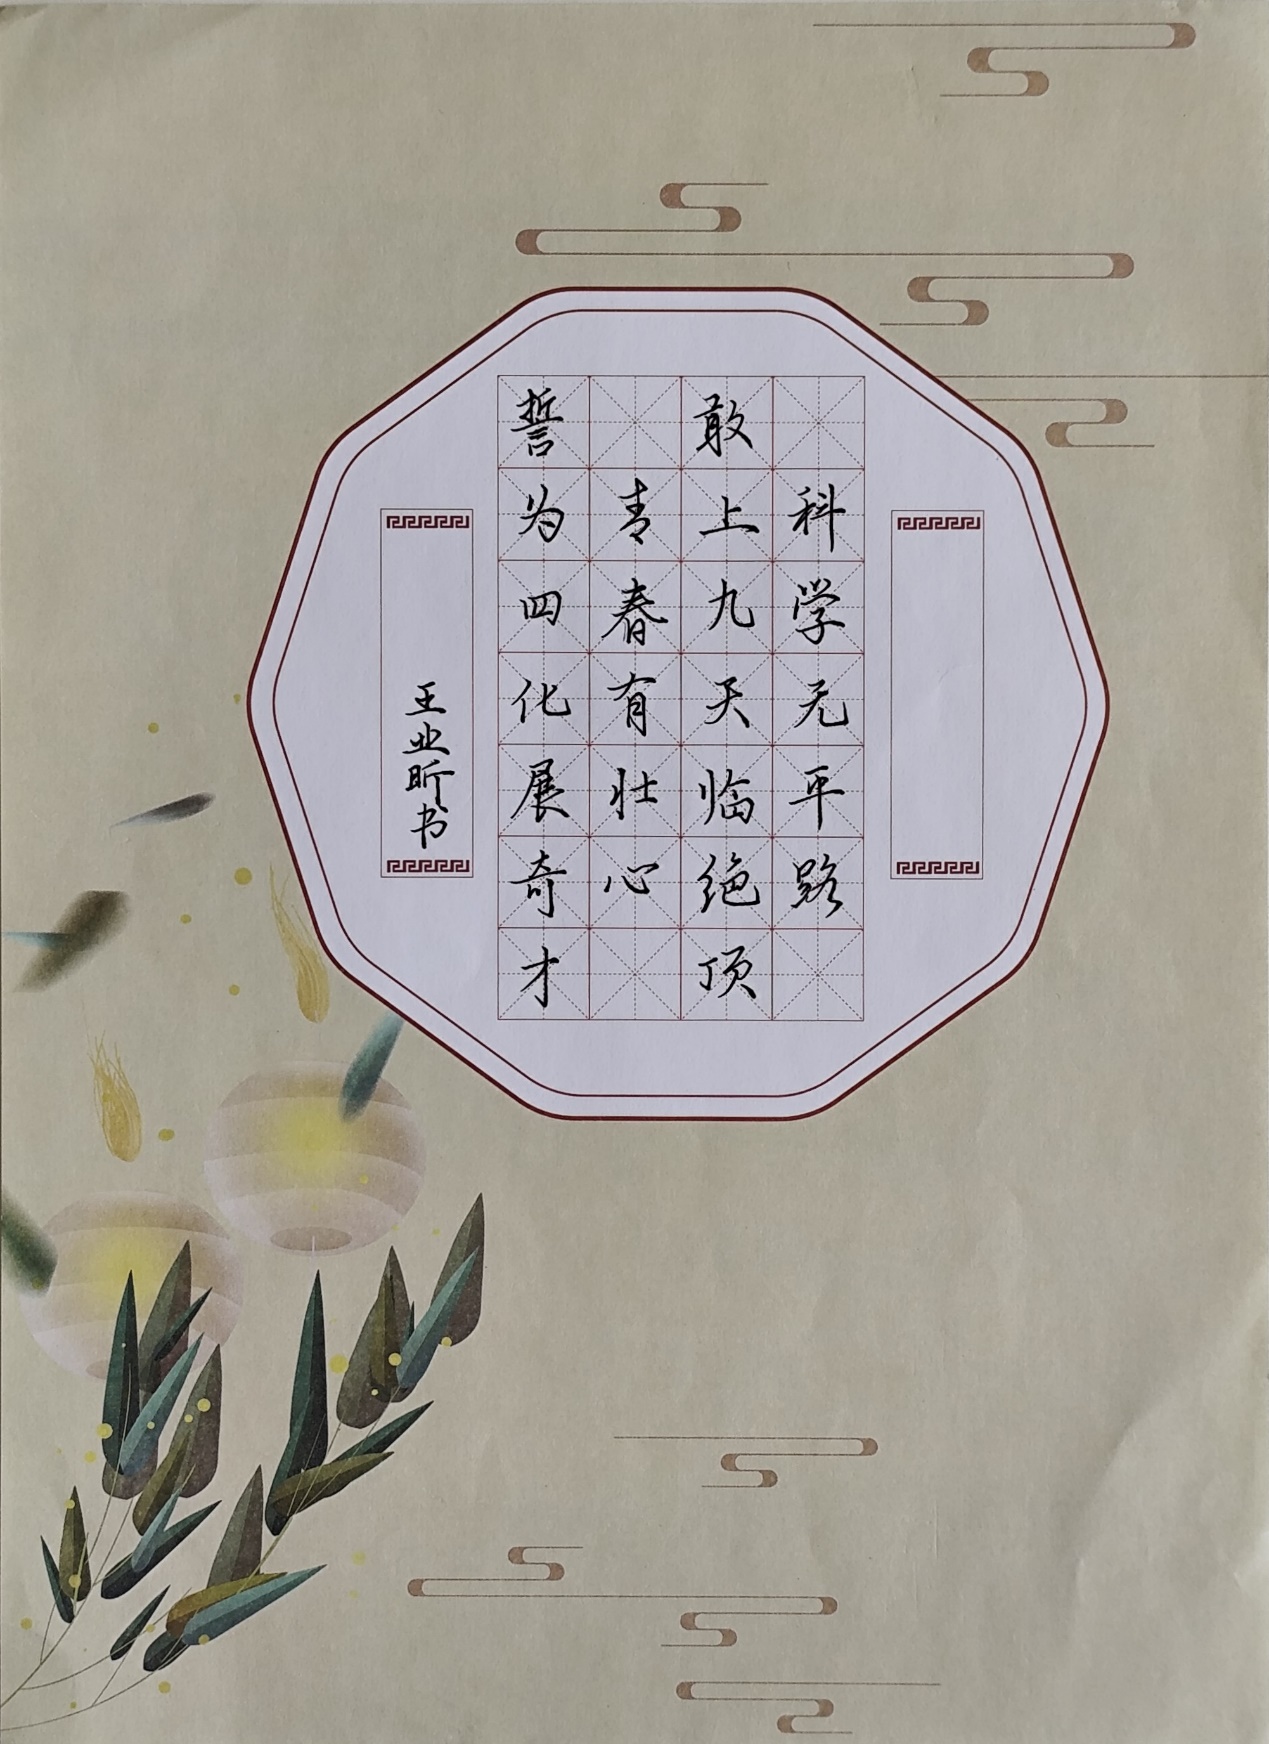 科学无平路
敢上九天临绝顶
青春有壮心
誓为四化展奇才
王业昕书